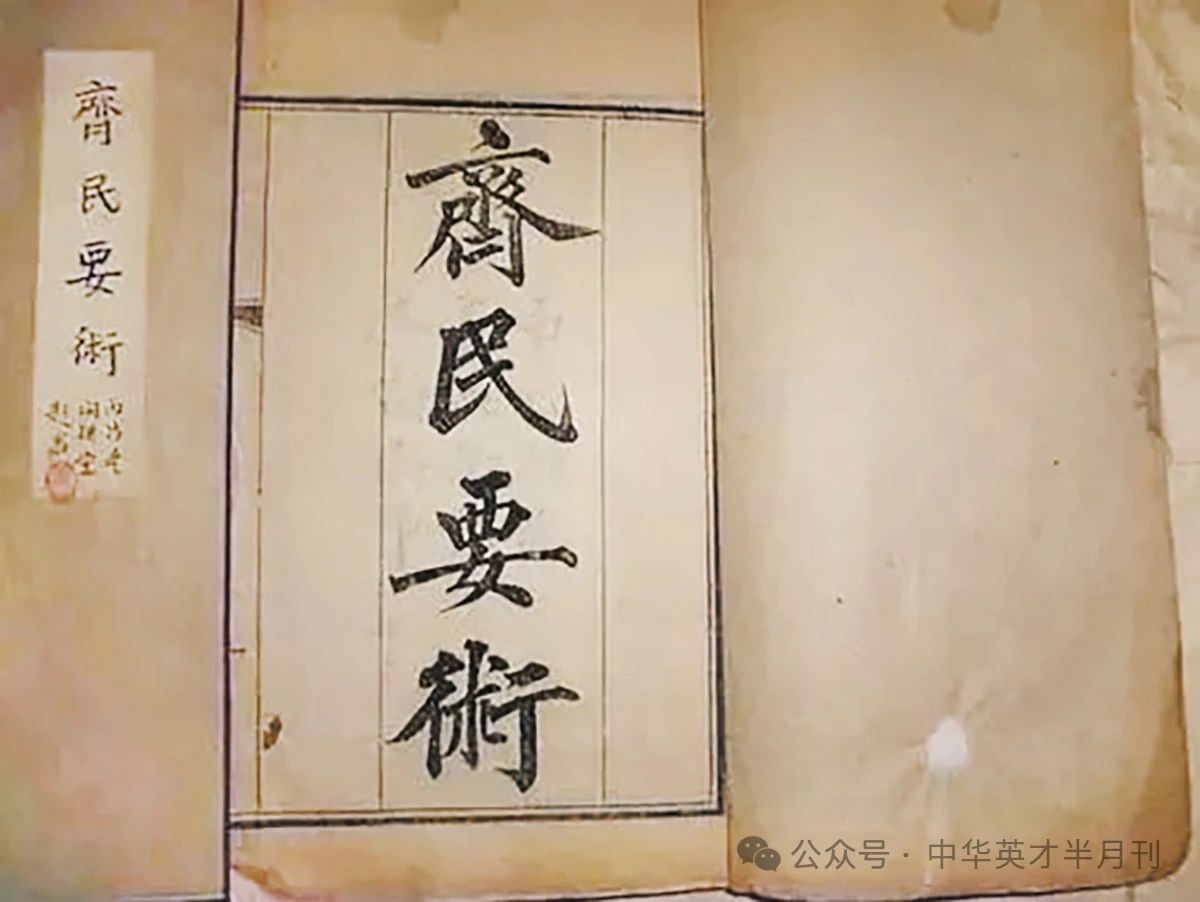 齊民要術
齊民要術
公众号·中华英才半月刊